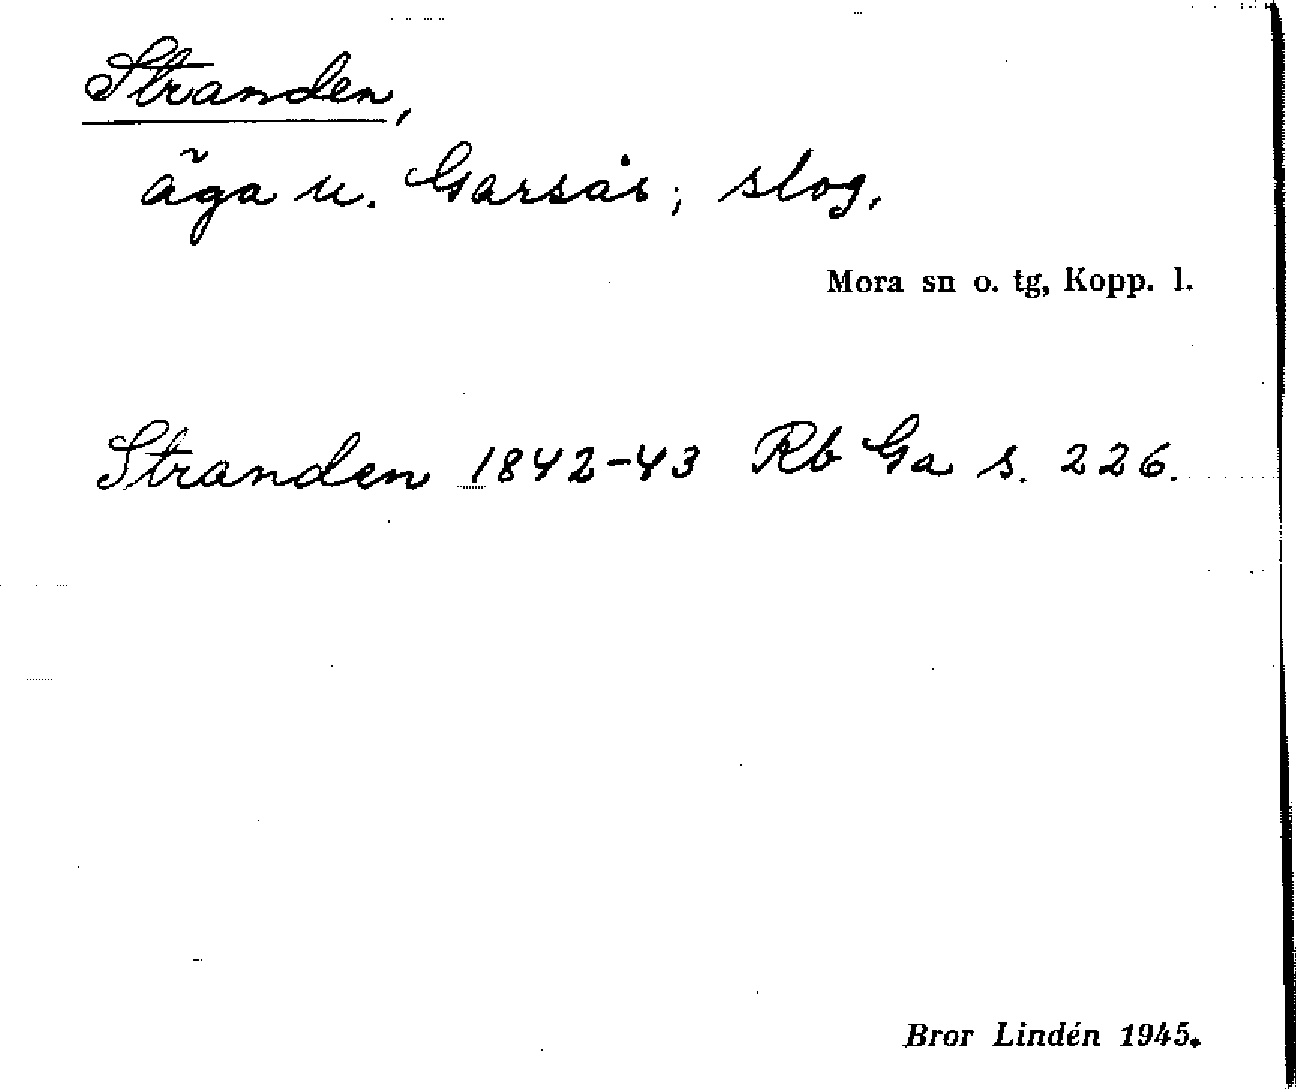 Stranden,
äga u. Garsås; slog.
Mora sn o. tg, Kopp. l.
Stranden 1842-43 Rb Ga s. 226.
Bror Lindén 1945.